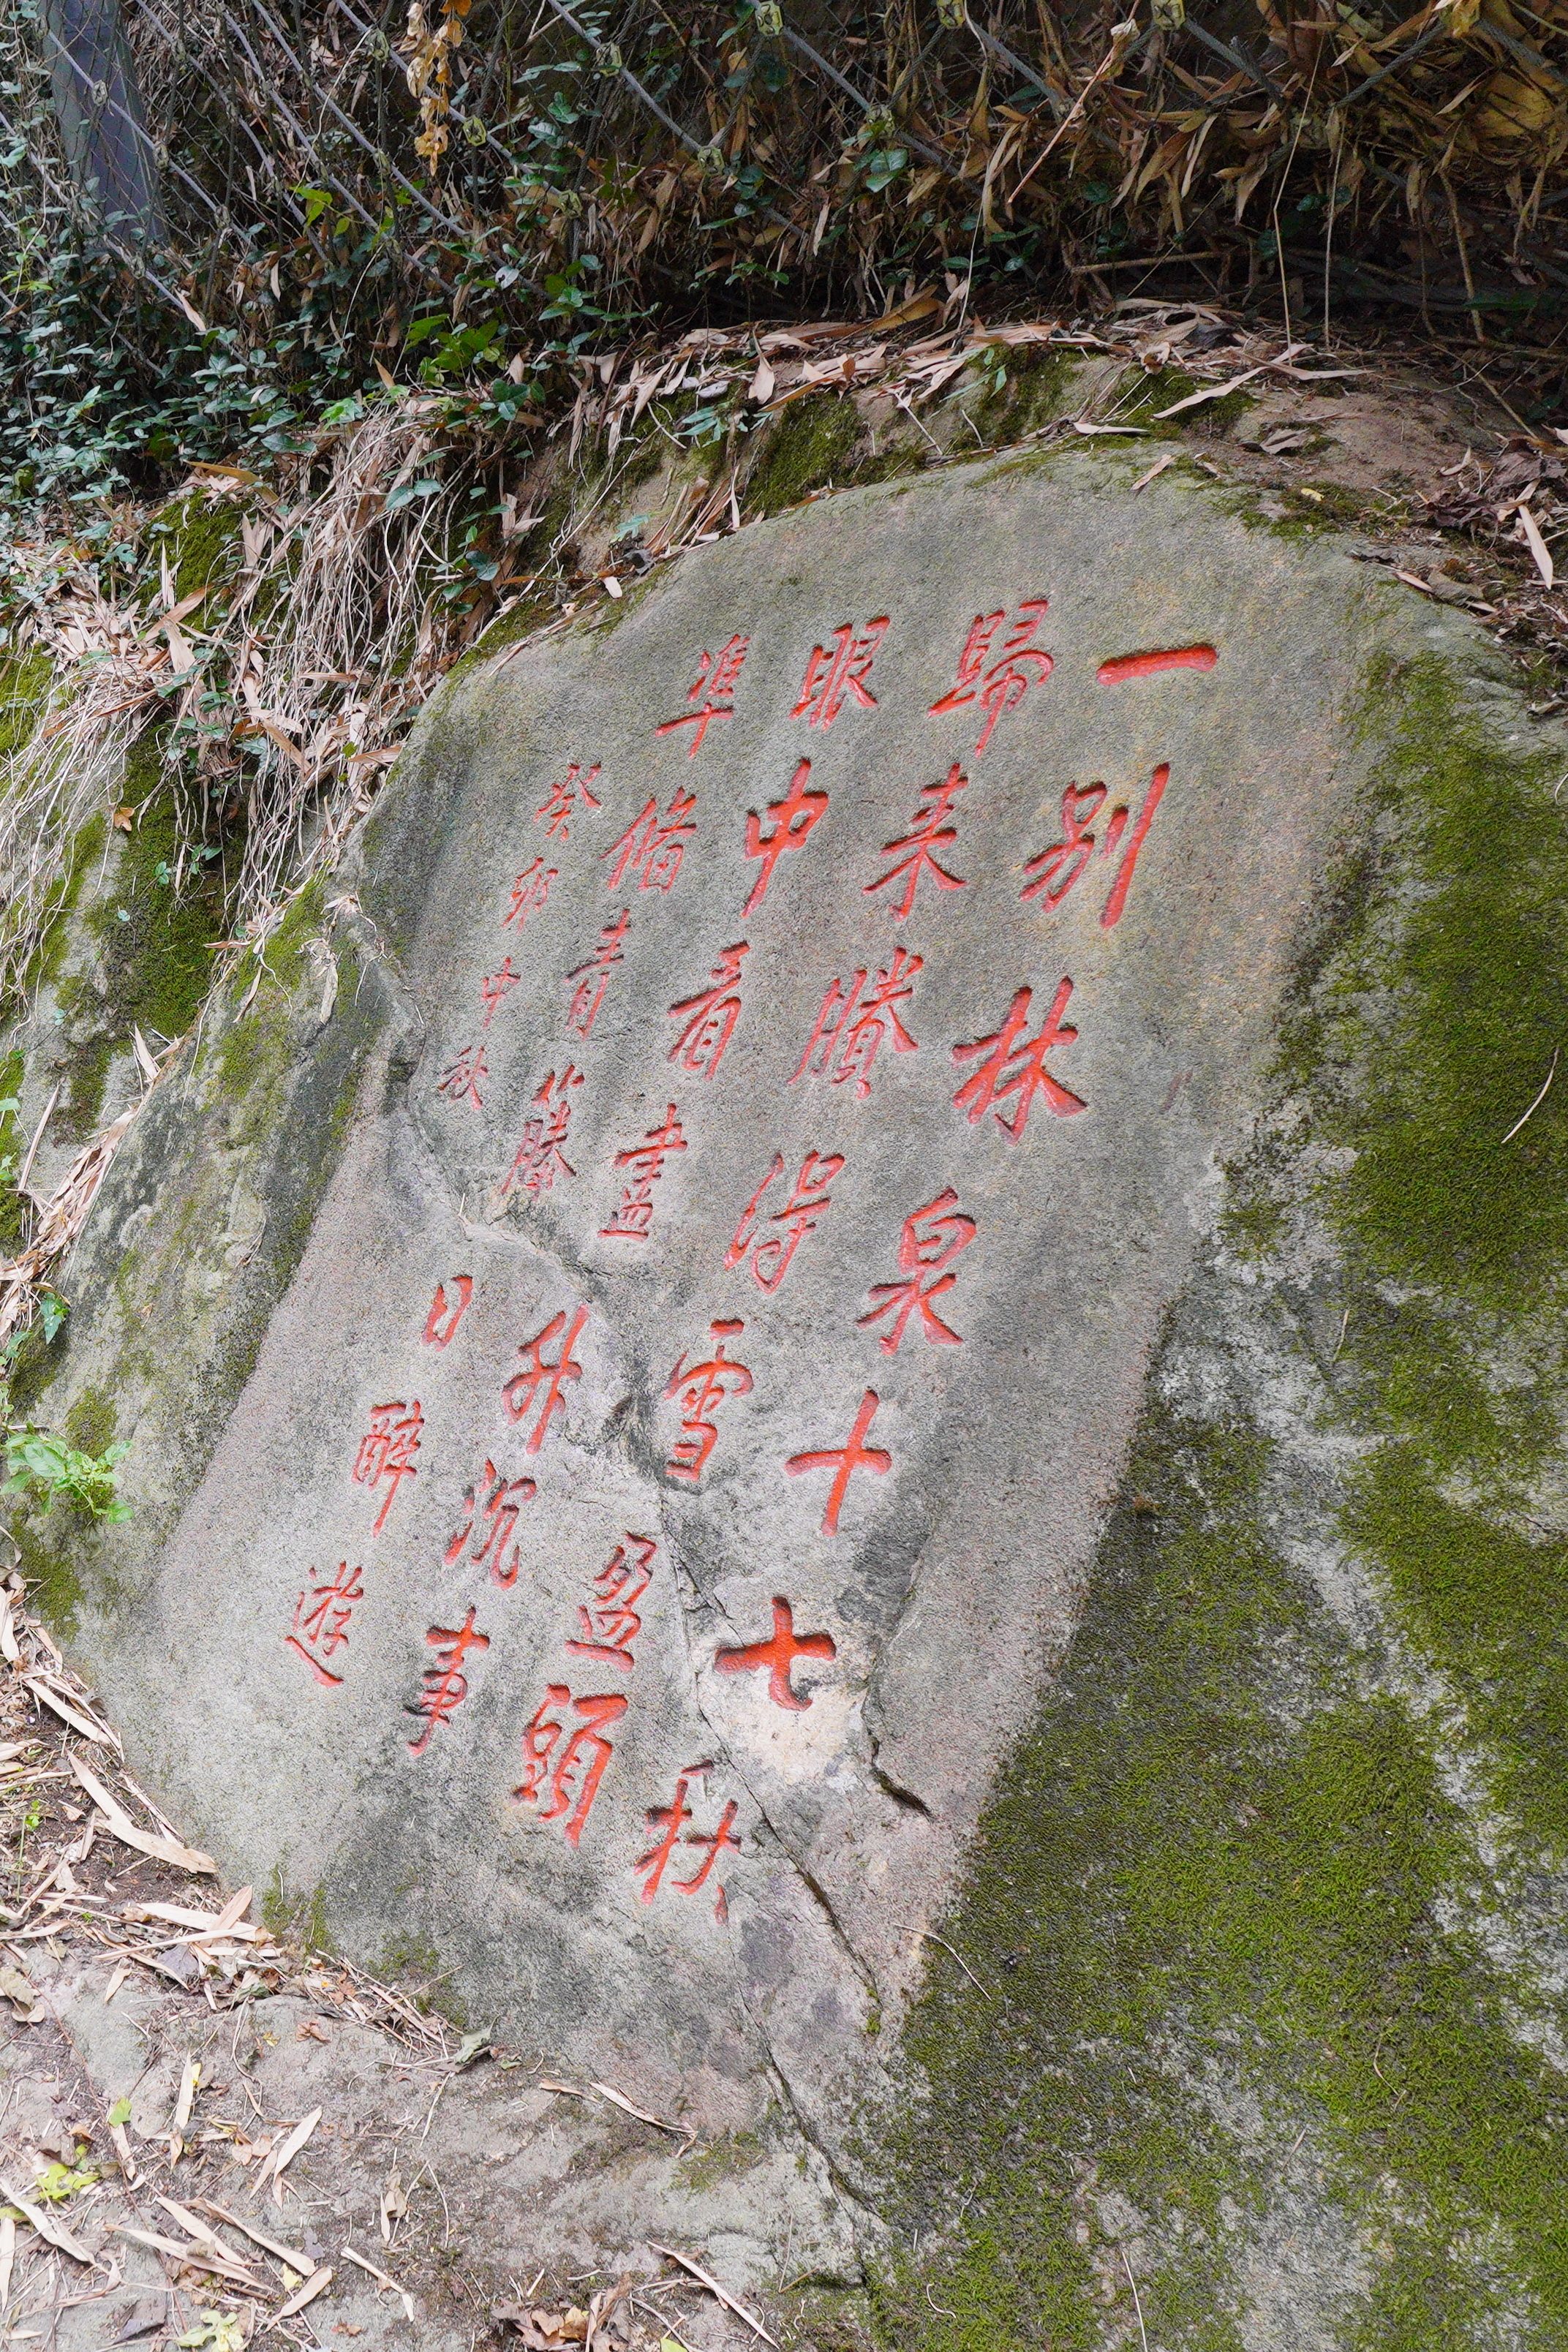 一别林泉十七秋
歸来賸得雪盈頭
眼中看盡升沉事
準備青藤日醉遊
癸卯中秋